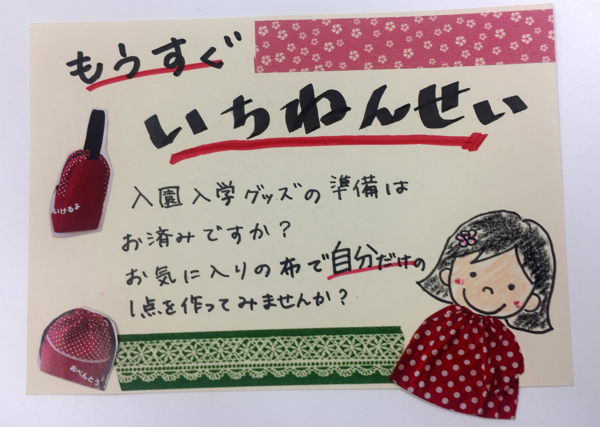 もうすぐ
いちねんせい
入園入学グッズの準備は
お済みですか?
お気に入りの布で自分だけの
1点を作ってみませんか?
いけるよ
おべんとう